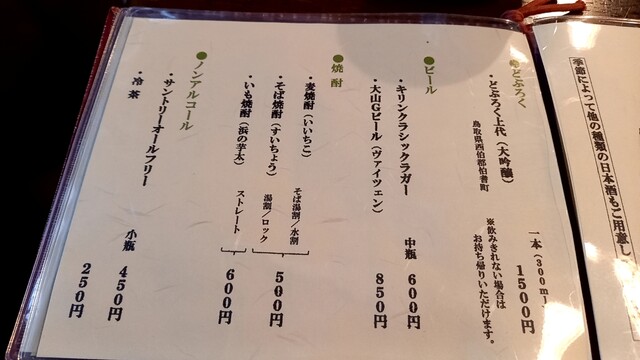 季節によって他の種類の日本酒もご用意し
●どぶろく
・どぶろく上代（大吟醸）
鳥取県西伯郡伯耆町
一本（300ml）
1500円
※飲みきれない場合は
お持ち帰りいただけます。
●ビール
・キリンクラシックラガー
中瓶 600円
・大山Gビール（ヴァイツェン）
850円
●焼酎
・麦焼酎（いいちこ）
そば湯割/水割
・そば焼酎（すいちょう）
湯割/ロック
500円
・いも焼酎（浜の芋太）
ストレート
600円
●ノンアルコール
・サントリーオールフリー
小瓶 450円
・冷茶
250円